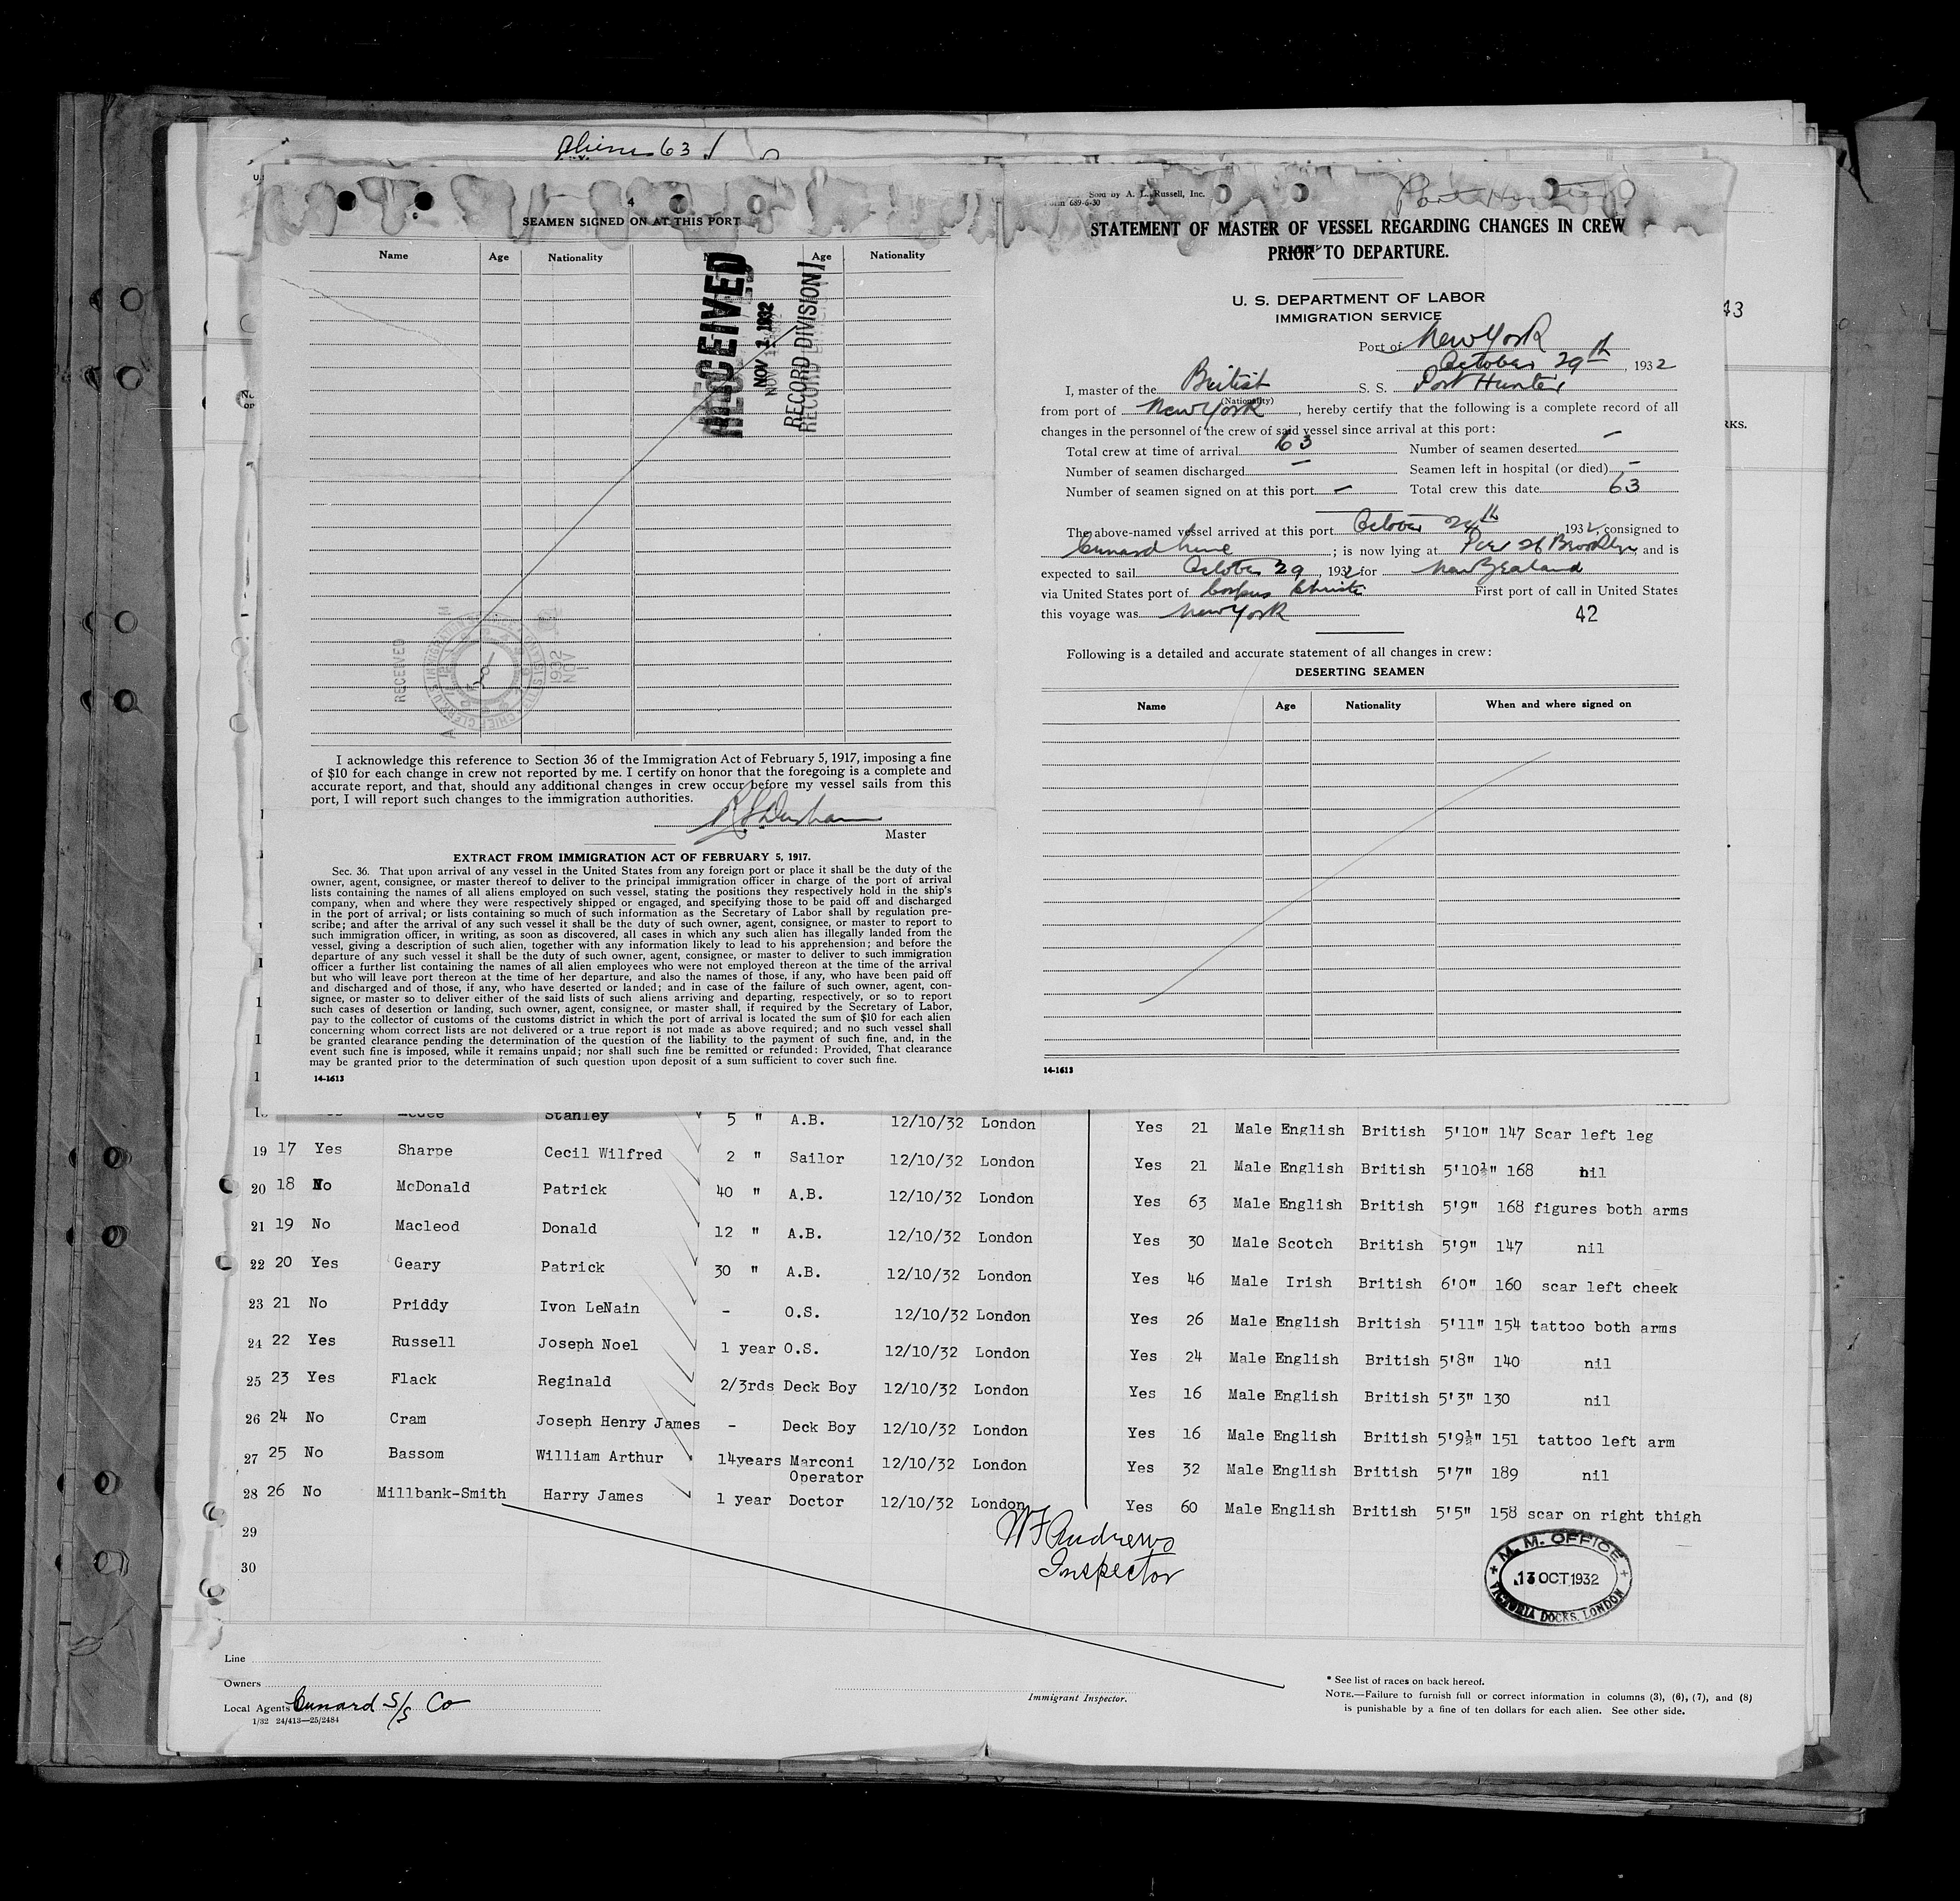 Aliens 63
4
SEAMEN SIGNED ON AT THIS PORT
Name Age Nationality Age Nationality
RECEIVED
NOV 1 1932
RECORD DIVISION
RECEIVED
1932
NOV
I acknowledge this reference to Section 36 of the Immigration Act of February 5, 1917, imposing a fine
of $10 for each change in crew not reported by me. I certify on honor that the foregoing is a complete and
accurate report, and that, should any additional changes in crew occur before my vessel sails from this
port, I will report such changes to the immigration authorities.
Master
EXTRACT FROM IMMIGRATION ACT OF FEBRUARY 5, 1917.
Sec. 36. That upon arrival of any vessel in the United States from any foreign port or place it shall be the duty of the
owner, agent, consignee, or master thereof to deliver to the principal immigration officer in charge of the port of arrival
lists containing the names of all aliens employed on such vessel, stating the positions they respectively hold in the ship's
company, when and where they were respectively shipped or engaged, and specifying those to be paid off and discharged
in the port of arrival; or lists containing so much of such information as the Secretary of Labor shall by regulation pre-
scribe; and after the arrival of any such vessel it shall be the duty of such owner, agent, consignee, or master to report to
such immigration officer, in writing, as soon as discovered, all cases in which any such alien has illegally landed from the
vessel, giving a description of such alien, together with any information likely to lead to his apprehension; and before the
departure of any such vessel it shall be the duty of such owner, agent, consignee, or master to deliver to such immigration
officer a further list containing the names of all alien employees who were not employed thereon at the time of the arrival
but who will leave port thereon at the time of her departure, and also the names of those, if any, who have been paid off
and discharged and of those, if any, who have deserted or landed; and in case of the failure of such owner, agent, con-
signee, or master so to deliver either of the said lists of such aliens arriving and departing, respectively, or so to report
such cases of desertion or landing, such owner, agent, consignee, or master shall, if required by the Secretary of Labor,
pay to the collector of customs of the customs district in which the port of arrival is located the sum of $10 for each alien
concerning whom correct lists are not delivered or a true report is not made as above required; and no such vessel shall
be granted clearance pending the determination of the question of the liability to the payment of such fine, and, in the
event such fine is imposed, while it remains unpaid; nor shall such fine be remitted or refunded: Provided, That clearance
may be granted prior to the determination of such question upon deposit of a sum sufficient to cover such fine.
14-1613
Sold by A. L. Russell, Inc.
Form 689-6-30
Port Hunter
STATEMENT OF MASTER OF VESSEL REGARDING CHANGES IN CREW
PRIOR TO DEPARTURE.
U. S. DEPARTMENT OF LABOR
IMMIGRATION SERVICE
Port of New York
October 29th, 1932
I, master of the British S. S. Port Hunter
(Nationality)
from port of New York, hereby certify that the following is a complete record of all
changes in the personnel of the crew of said vessel since arrival at this port:
Total crew at time of arrival 63 Number of seamen deserted —
Number of seamen discharged — Seamen left in hospital (or died) —
Number of seamen signed on at this port — Total crew this date 63
The above-named vessel arrived at this port October th, 1932, consigned to
Cunard Line; is now lying at Pier 26 Brooklyn, and is
expected to sail October 29, 1932 for New Zealand
via United States port of Corpus Christi First port of call in United States
this voyage was New York 42
Following is a detailed and accurate statement of all changes in crew:
DESERTING SEAMEN
Name Age Nationality When and where signed on
14-1613
43
RKS.
Stanley 5 " A.B. 12/10/32 London Yes 21 Male English British 5'10" 147 Scar left leg
19 17 Yes Sharpe Cecil Wilfred 2 " Sailor 12/10/32 London Yes 21 Male English British 5'10½" 168 nil
20 18 No McDonald Patrick 40 " A.B. 12/10/32 London Yes 63 Male English British 5'9" 168 figures both arms
21 19 No Macleod Donald 12 " A.B. 12/10/32 London Yes 30 Male Scotch British 5'9" 147 nil
22 20 Yes Geary Patrick 30 " A.B. 12/10/32 London Yes 46 Male Irish British 6'0" 160 scar left cheek
23 21 No Priddy Ivon LeNain - O.S. 12/10/32 London Yes 26 Male English British 5'11" 154 tattoo both arms
24 22 Yes Russell Joseph Noel 1 year O.S. 12/10/32 London Yes 24 Male English British 5'8" 140 nil
25 23 Yes Flack Reginald 2/3rds Deck Boy 12/10/32 London Yes 16 Male English British 5'3" 130 nil
26 24 No Cram Joseph Henry James - Deck Boy 12/10/32 London Yes 16 Male English British 5'9½" 151 tattoo left arm
27 25 No Bassom William Arthur 14years Marconi Operator 12/10/32 London Yes 32 Male English British 5'7" 189 nil
28 26 No Millbank-Smith Harry James 1 year Doctor 12/10/32 London Yes 60 Male English British 5'5" 158 scar on right thigh
29
30
W F Andrews
Inspector
M. M. OFFICE
13 OCT 1932
VICTORIA DOCKS, LONDON
Line
Owners
Local Agents Cunard S/S Co
1/32 24/413—25/2484
Immigrant Inspector.
* See list of races on back hereof.
NOTE.—Failure to furnish full or correct information in columns (3), (6), (7), and (8)
is punishable by a fine of ten dollars for each alien. See other side.